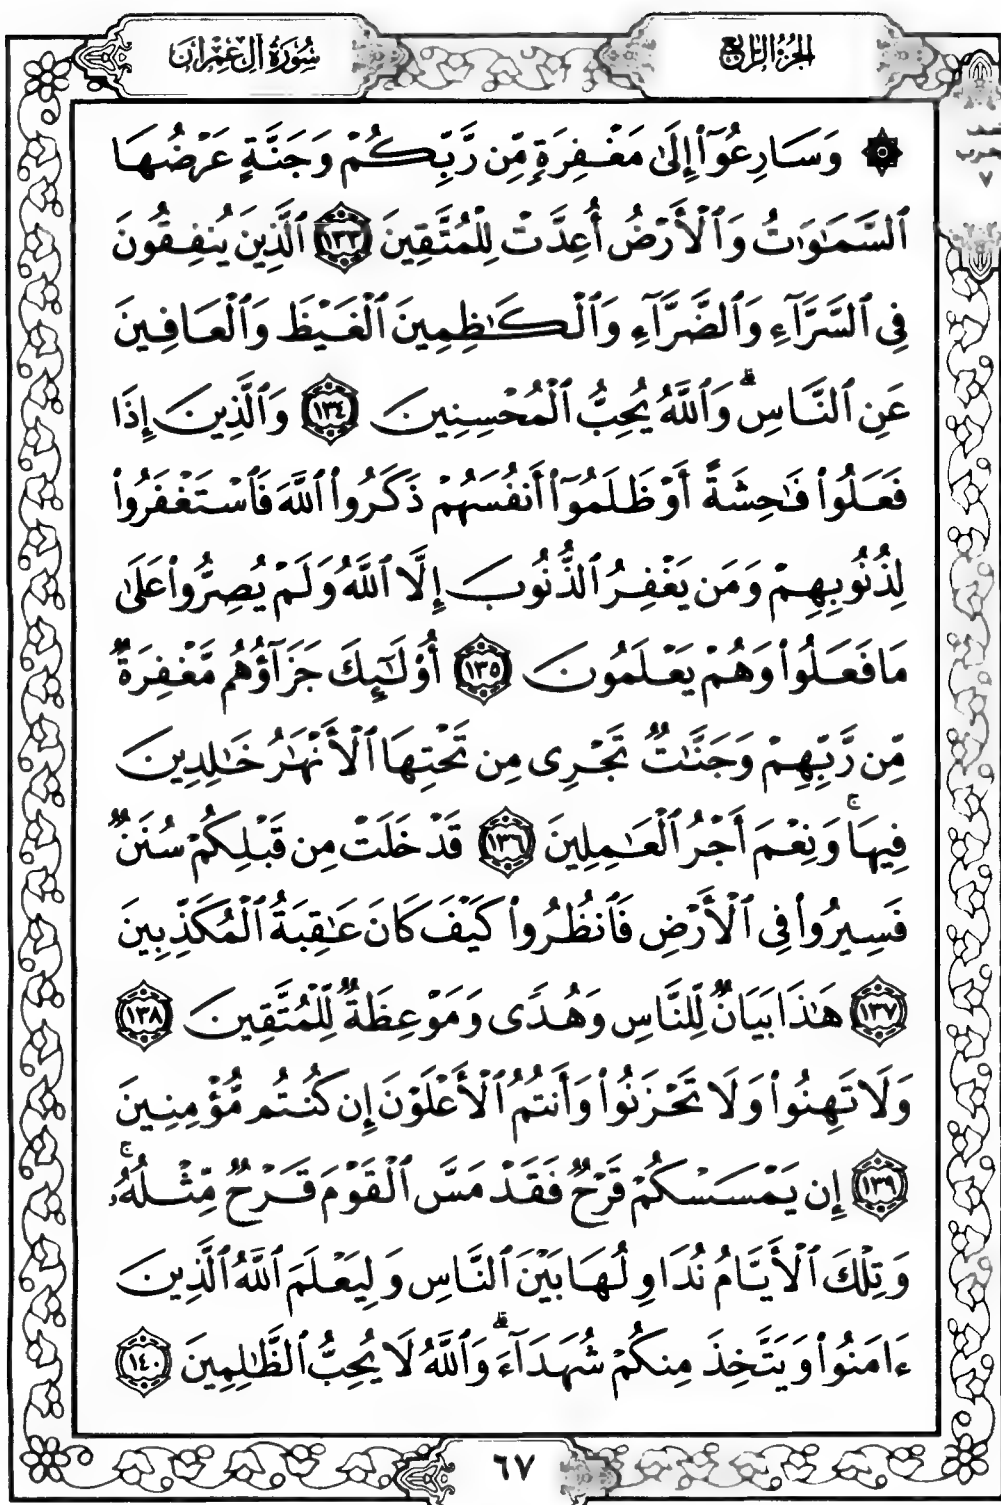 الجزء الرابع
سورة آل عمران
حزب
٧
۞ وَسَارِعُوٓا۟ إِلَىٰ مَغْفِرَةٍ مِّن رَّبِّكُمْ وَجَنَّةٍ عَرْضُهَا
ٱلسَّمَـٰوَٰتُ وَٱلْأَرْضُ أُعِدَّتْ لِلْمُتَّقِينَ ١٣٣ ٱلَّذِينَ يُنفِقُونَ
فِى ٱلسَّرَّآءِ وَٱلضَّرَّآءِ وَٱلْكَـٰظِمِينَ ٱلْغَيْظَ وَٱلْعَافِينَ
عَنِ ٱلنَّاسِ ۗ وَٱللَّهُ يُحِبُّ ٱلْمُحْسِنِينَ ١٣٤ وَٱلَّذِينَ إِذَا
فَعَلُوا۟ فَـٰحِشَةً أَوْ ظَلَمُوٓا۟ أَنفُسَهُمْ ذَكَرُوا۟ ٱللَّهَ فَٱسْتَغْفَرُوا۟
لِذُنُوبِهِمْ وَمَن يَغْفِرُ ٱلذُّنُوبَ إِلَّا ٱللَّهُ وَلَمْ يُصِرُّوا۟ عَلَىٰ
مَا فَعَلُوا۟ وَهُمْ يَعْلَمُونَ ١٣٥ أُو۟لَـٰٓئِكَ جَزَآؤُهُم مَّغْفِرَةٌ
مِّن رَّبِّهِمْ وَجَنَّـٰتٌ تَجْرِى مِن تَحْتِهَا ٱلْأَنْهَـٰرُ خَـٰلِدِينَ
فِيهَا ۚ وَنِعْمَ أَجْرُ ٱلْعَـٰمِلِينَ ١٣٦ قَدْ خَلَتْ مِن قَبْلِكُمْ سُنَنٌ
فَسِيرُوا۟ فِى ٱلْأَرْضِ فَٱنظُرُوا۟ كَيْفَ كَانَ عَـٰقِبَةُ ٱلْمُكَذِّبِينَ
١٣٧ هَـٰذَا بَيَانٌ لِّلنَّاسِ وَهُدًى وَمَوْعِظَةٌ لِّلْمُتَّقِينَ ١٣٨
وَلَا تَهِنُوا۟ وَلَا تَحْزَنُوا۟ وَأَنتُمُ ٱلْأَعْلَوْنَ إِن كُنتُم مُّؤْمِنِينَ
١٣٩ إِن يَمْسَسْكُمْ قَرْحٌ فَقَدْ مَسَّ ٱلْقَوْمَ قَرْحٌ مِّثْلُهُۥ ۚ
وَتِلْكَ ٱلْأَيَّامُ نُدَاوِلُهَا بَيْنَ ٱلنَّاسِ وَلِيَعْلَمَ ٱللَّهُ ٱلَّذِينَ
ءَامَنُوا۟ وَيَتَّخِذَ مِنكُمْ شُهَدَآءَ ۗ وَٱللَّهُ لَا يُحِبُّ ٱلظَّـٰلِمِينَ ١٤٠
٦٧